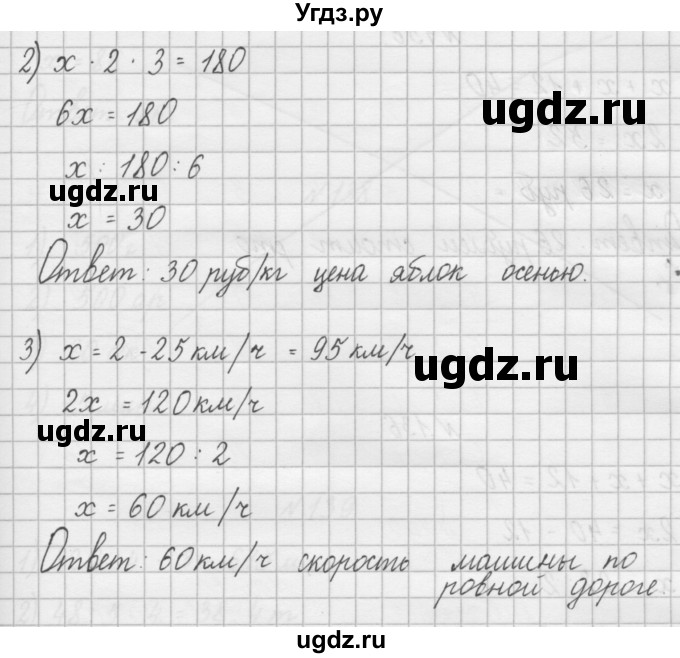 Угдз.ру
2) x · 2 · 3 = 180
6x = 180
x : 180 : 6
x = 30
Ответ: 30 руб/кг цена яблок осенью.
3) x = 2 - 25 км/ч = 95 км/ч
2x = 120 км/ч
x = 120 : 2
x = 60 км/ч
Ответ: 60 км/ч скорость машины по
ровной дороге.
ugdz.ru
ugdz.ru
ugdz.ru
ugdz.ru
ugdz.ru